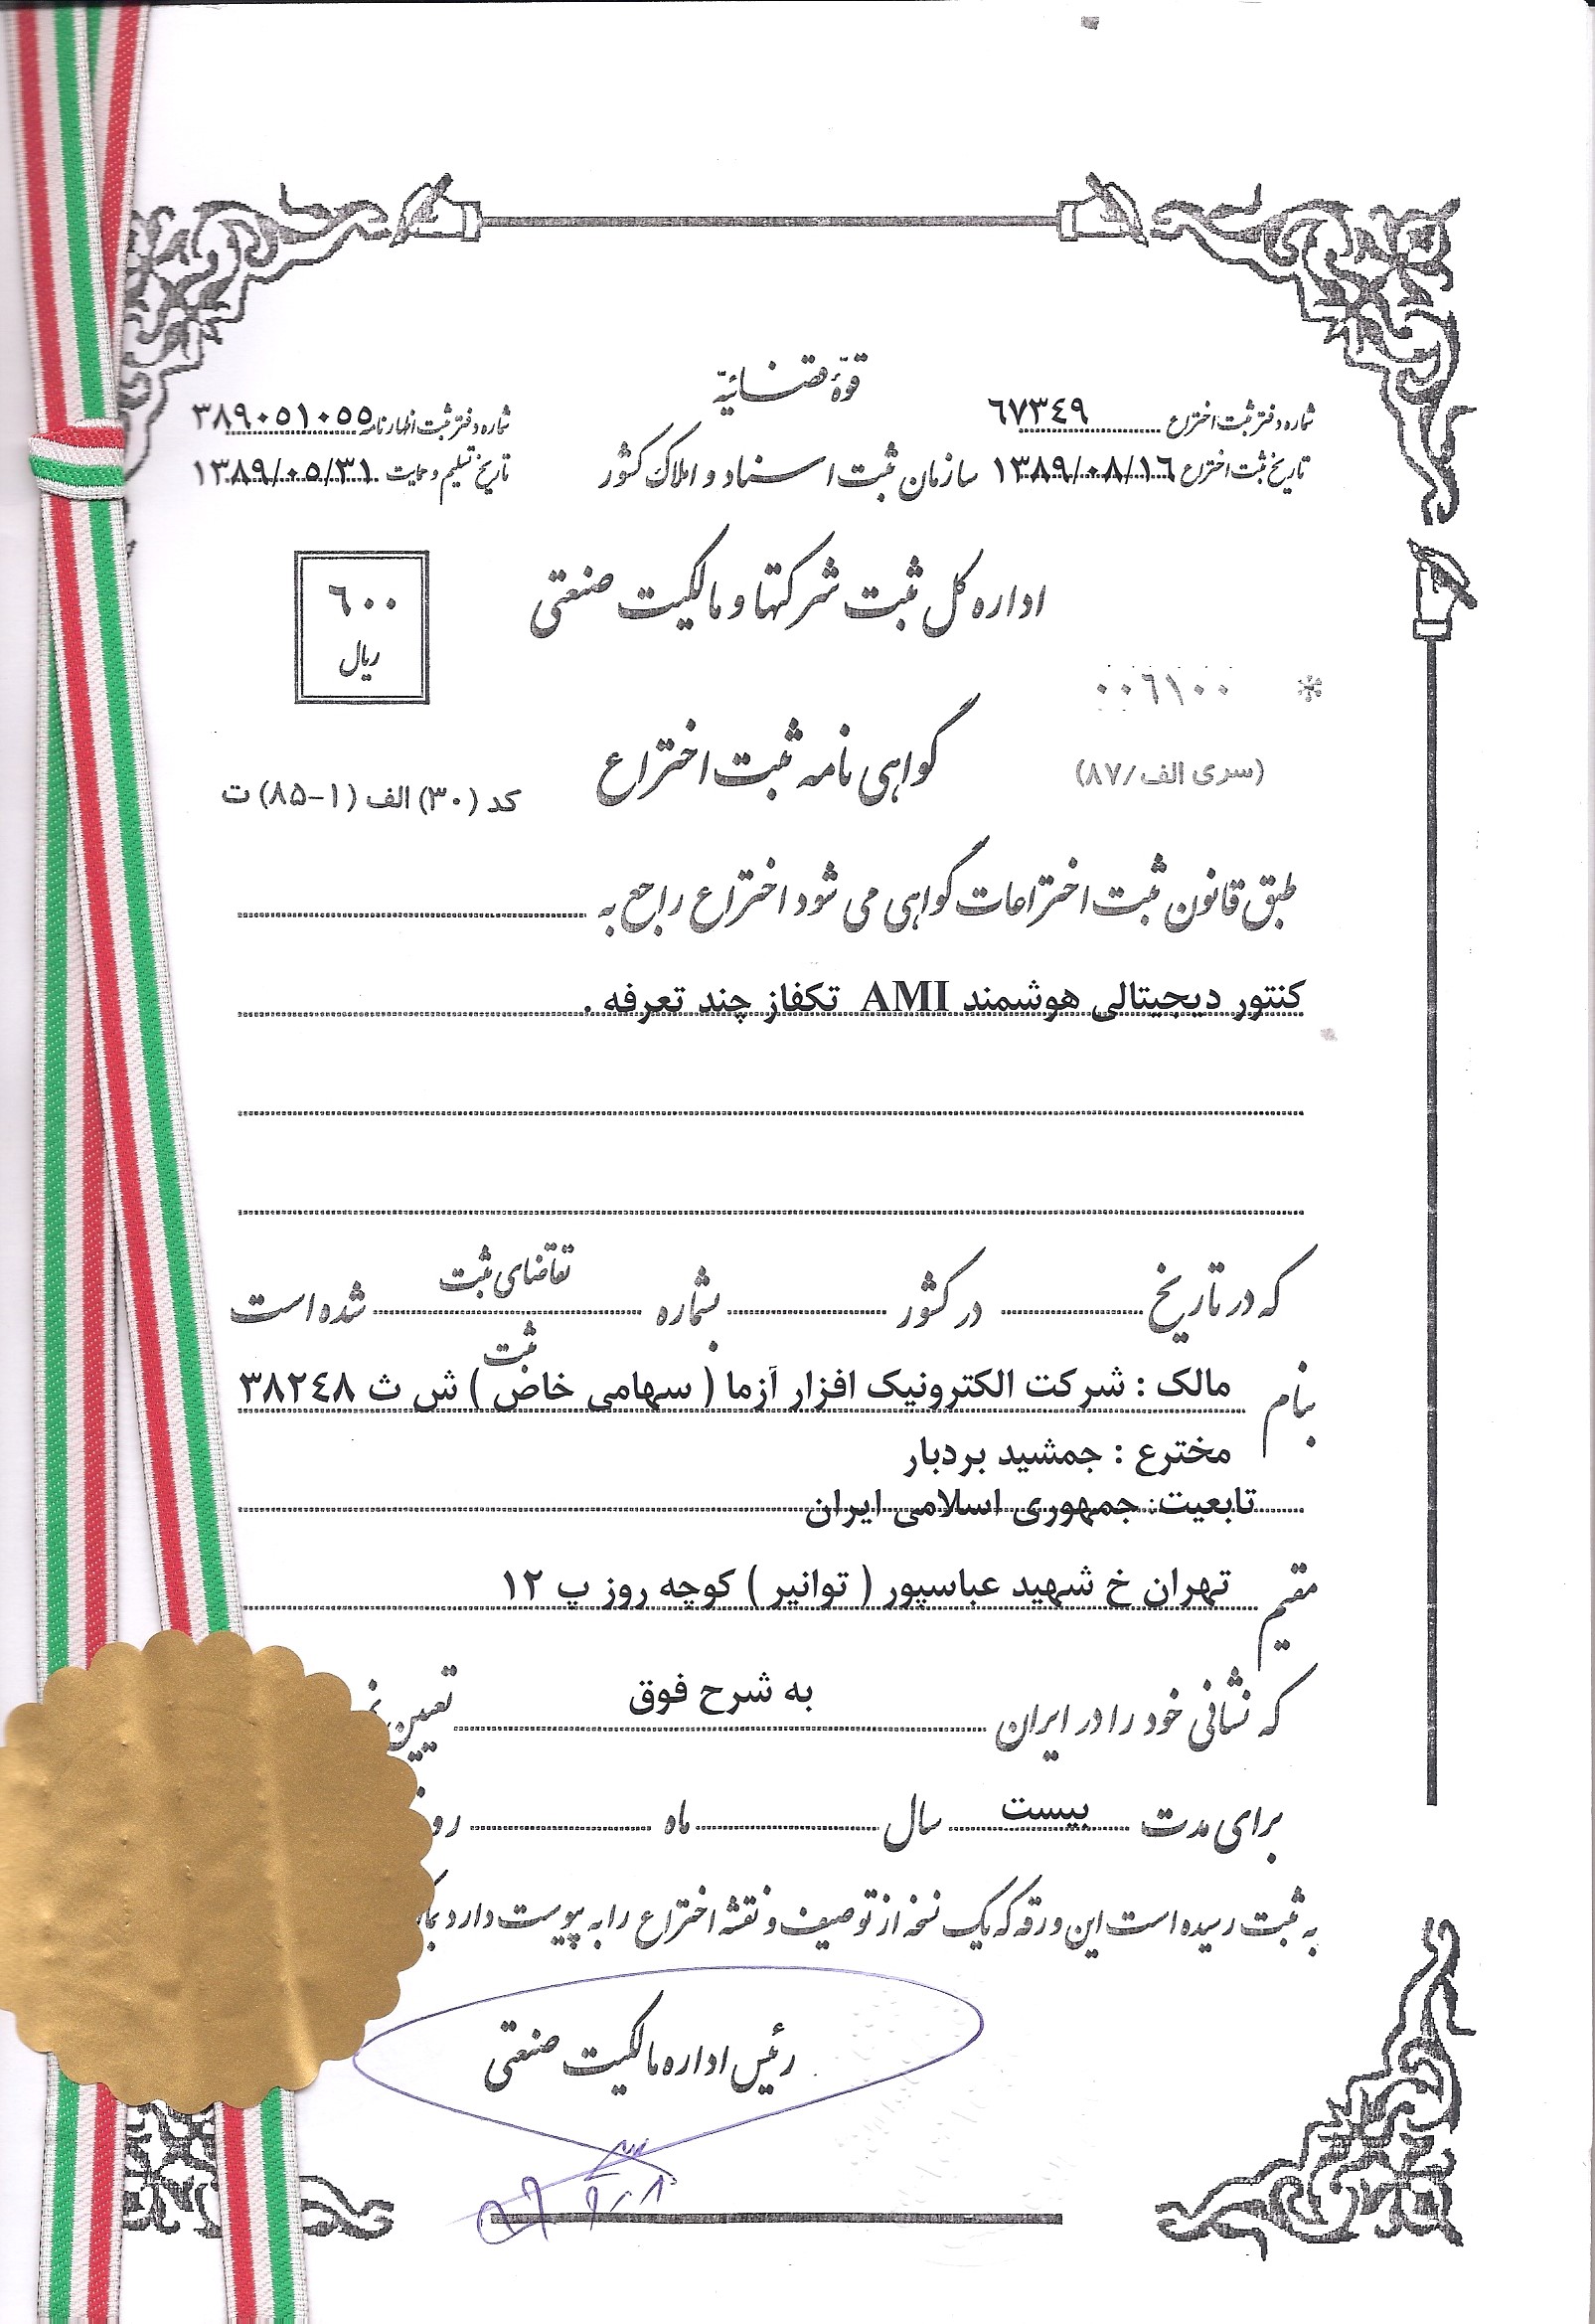 قوّهٔ قضائیّه
شماره دفتر ثبت اختراع ٦٧٣٤٩
شماره دفتر ثبت اظهارنامه ٣٨٩٠٥١٠٥٥
تاریخ ثبت اختراع ١٣٨٩/٠٨/١٦
سازمان ثبت اسناد و املاک کشور
تاریخ تسلیم و حمایت ١٣٨٩/٠٥/٣١
اداره کل ثبت شرکتها و مالکیت صنعتی
٦٠٠
ریال
* ٠٠٦١٠٠
گواهی نامه ثبت اختراع
(سری الف/۸۷)
کد (۳۰) الف (۱-۸۵) ت
طبق قانون ثبت اختراعات گواهی می شود اختراع راجع به
کنتور دیجیتالی هوشمند AMI تکفاز چند تعرفه .
که در تاریخ در کشور بشماره تقاضای ثبت شده است
ثبت
بنام مالک : شرکت الکترونیک افزار آزما ( سهامی خاص ) ش ث ٣٨٢٤٨
مخترع : جمشید بردبار
تابعیت: جمهوری اسلامی ایران
مقیم تهران خ شهید عباسپور ( توانیر ) کوچه روز پ ١٢
که نشانی خود را در ایران به شرح فوق تعیین
برای مدت بیست سال ماه
به ثبت رسیده است این ورقه که یک نسخه از توصیف و نقشه اختراع را به پیوست دارد
رئیس اداره مالکیت صنعتی